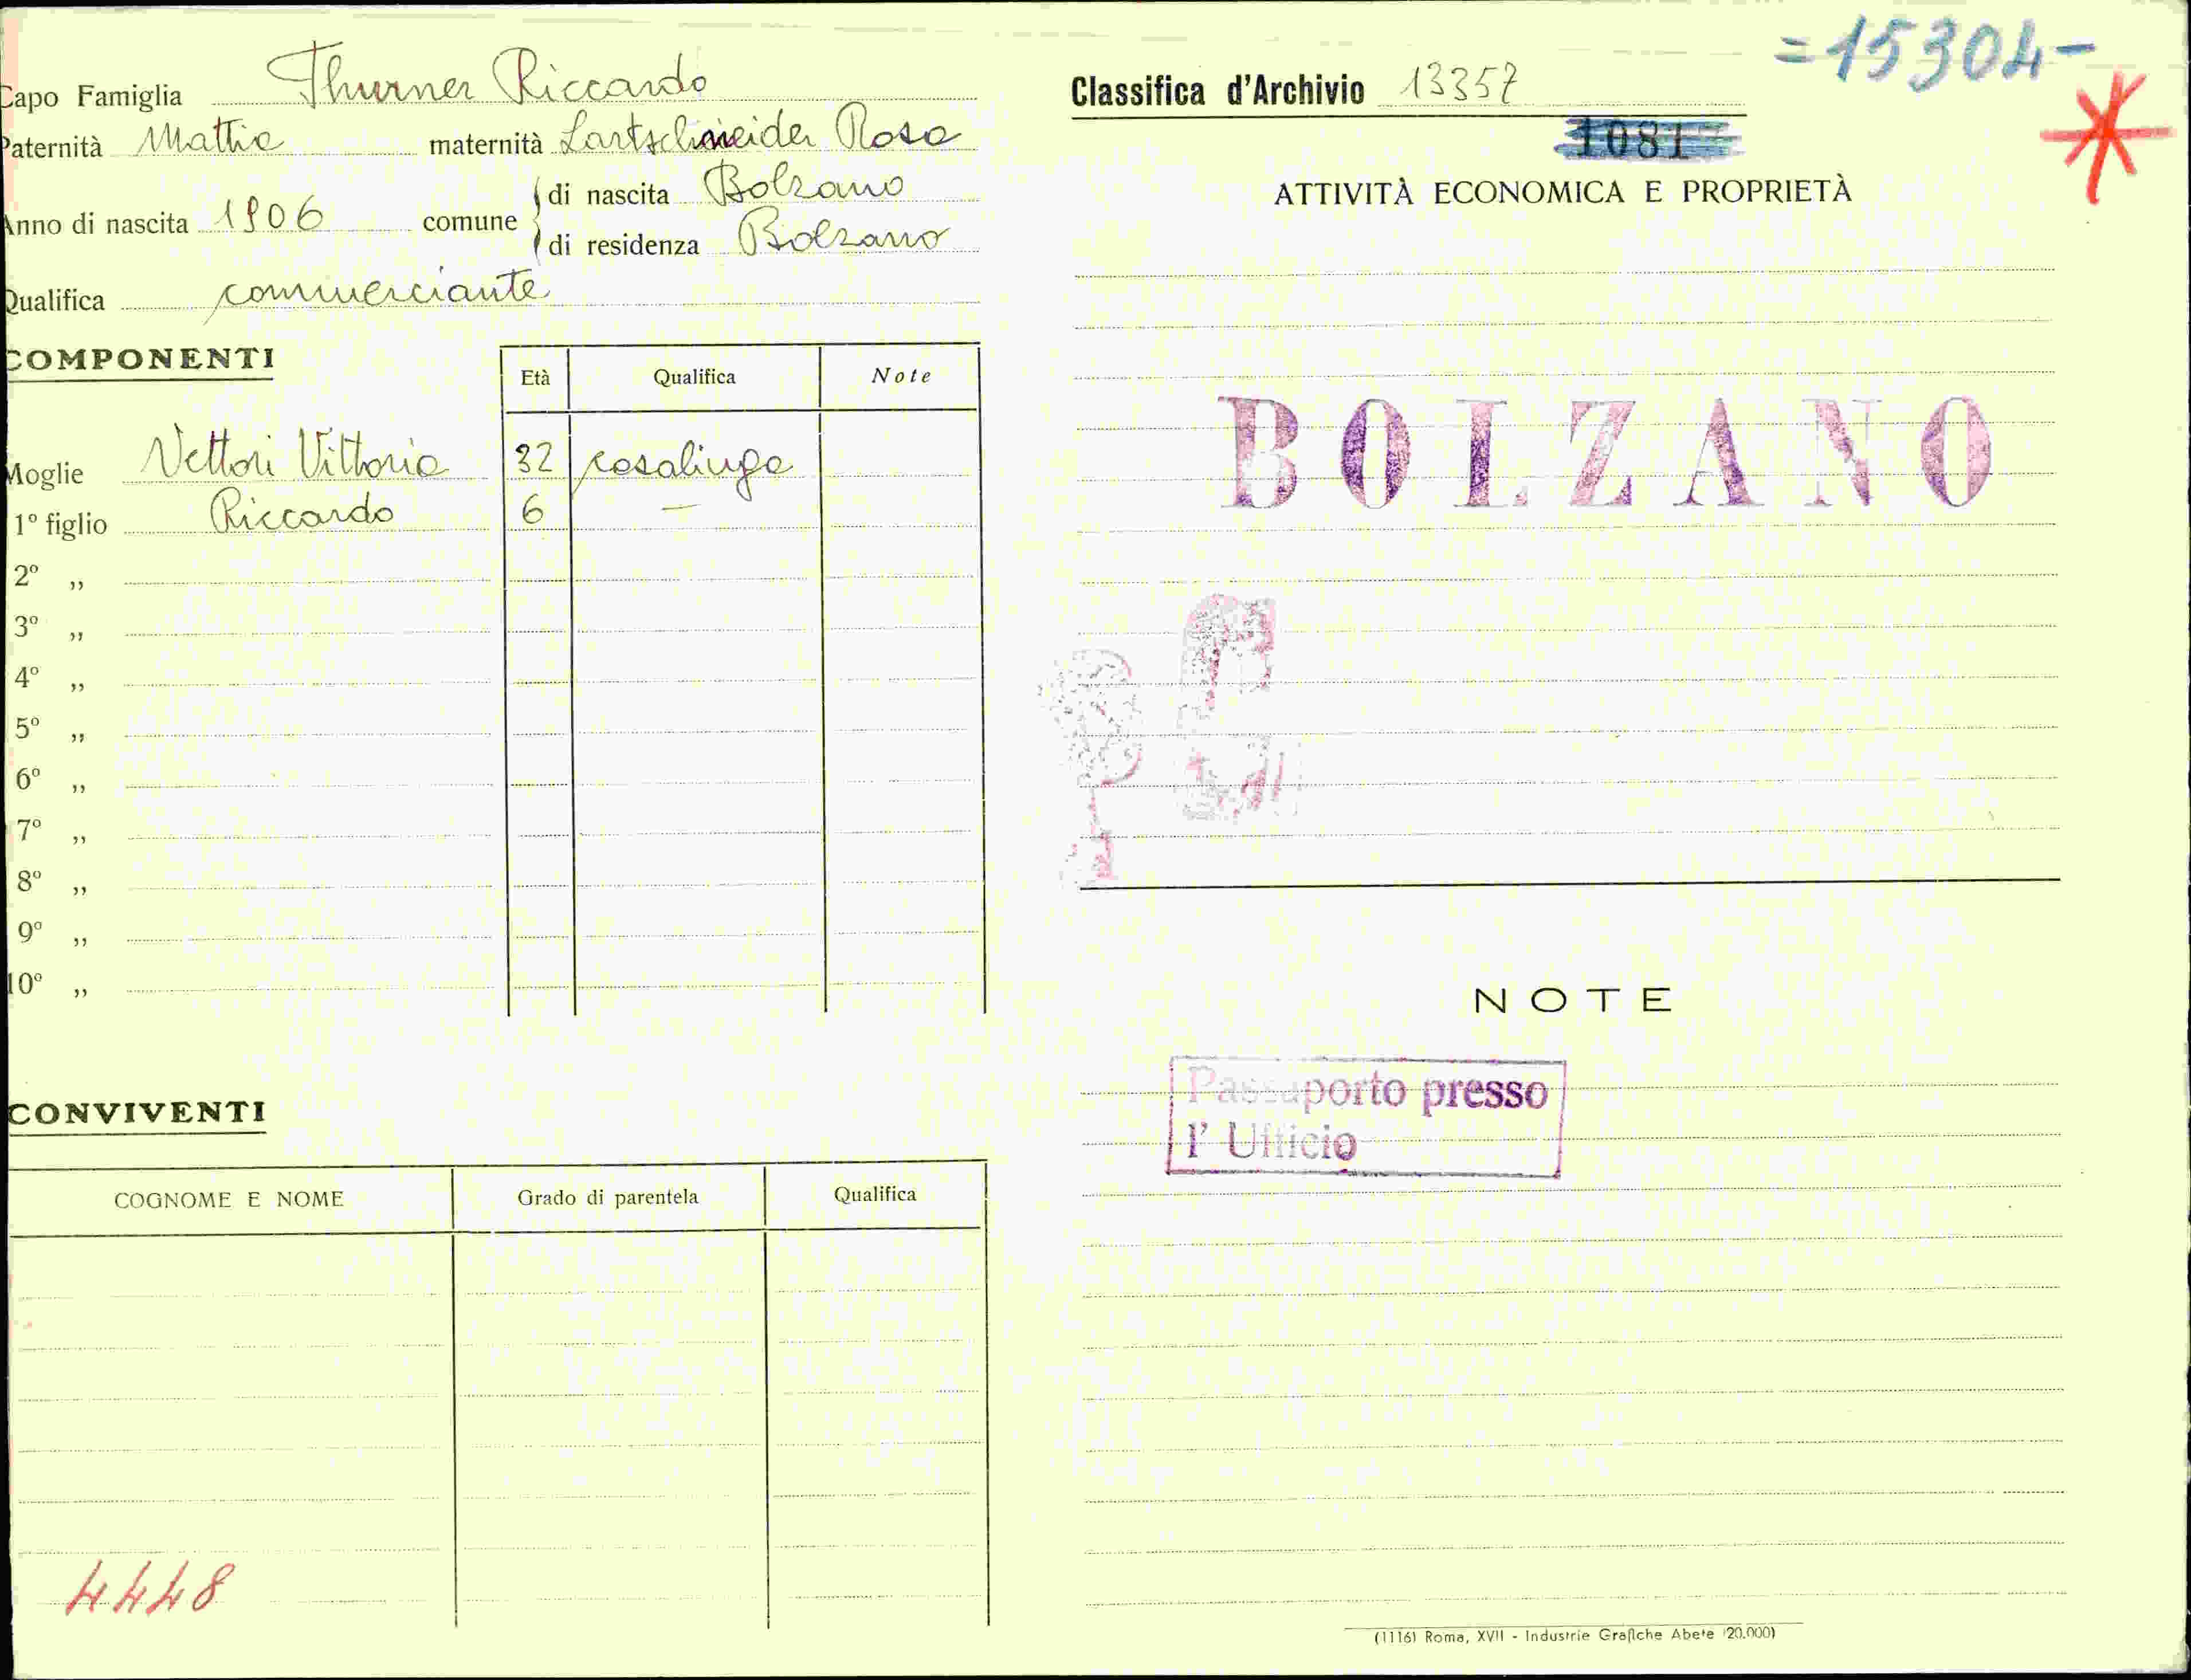 Capo Famiglia Thurner Riccardo
Paternità Mattia maternità Lartschneider Rosa
Anno di nascita 1906 comune di nascita Bolzano
di residenza Bolzano
Qualifica commerciante
COMPONENTI
Età Qualifica Note
Moglie Vettori Vittoria 32 casalinga
1º figlio Riccardo 6 —
2º „
3º „
4º „
5º „
6º „
7º „
8º „
9º „
10º „
CONVIVENTI
COGNOME E NOME Grado di parentela Qualifica
4448
=15304-
Classifica d'Archivio 13357
1081
ATTIVITÀ ECONOMICA E PROPRIETÀ
BOLZANO
NOTE
Passaporto presso
l' Ufficio
(1116) Roma, XVII - Industrie Grafiche Abete (20.000)